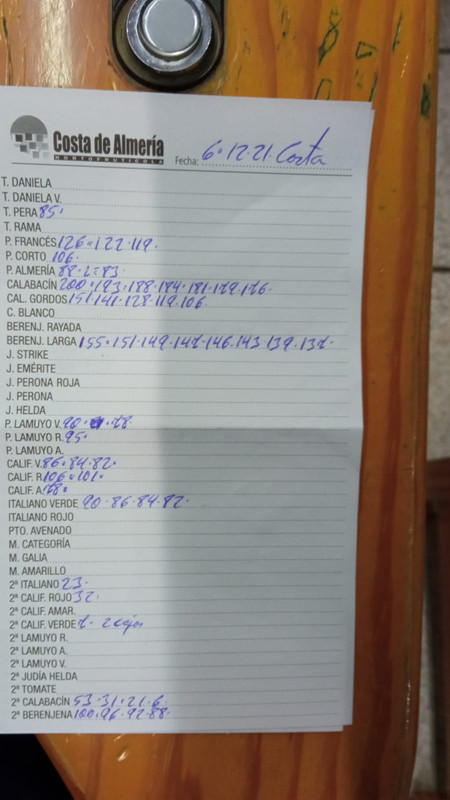 Costa de Almería
HORTOFRUTÍCOLA
Fecha: 6·12·21 Costa
T. DANIELA
T. DANIELA V.
T. PERA 85·
T. RAMA
P. FRANCÉS 126·122·119·
P. CORTO 106·
P. ALMERÍA 88·2=83·
CALABACÍN 200·193·188·184·181·179·176·
CAL. GORDOS 151·141·128·119·106·
C. BLANCO
BERENJ. RAYADA
BERENJ. LARGA 155·151·149·147·146·143·139·137·
J. STRIKE
J. EMÉRITE
J. PERONA ROJA
J. PERONA
J. HELDA
P. LAMUYO V. 90· ·78·
P. LAMUYO R. 95·
P. LAMUYO A.
CALIF. V. 86·84·82·
CALIF. R. 106·101·
CALIF. A. 78·
ITALIANO VERDE 90·86·84·82·
ITALIANO ROJO
PTO. AVENADO
M. CATEGORÍA
M. GALIA
M. AMARILLO
2ª ITALIANO 23·
2ª CALIF. ROJO 32·
2ª CALIF. AMAR.
2ª CALIF. VERDE 7- 2 cajas
2ª LAMUYO R.
2ª LAMUYO A.
2ª LAMUYO V.
2ª JUDÍA HELDA
2ª TOMATE
2ª CALABACÍN 53·31·21·6·
2ª BERENJENA 100·96·92·88·